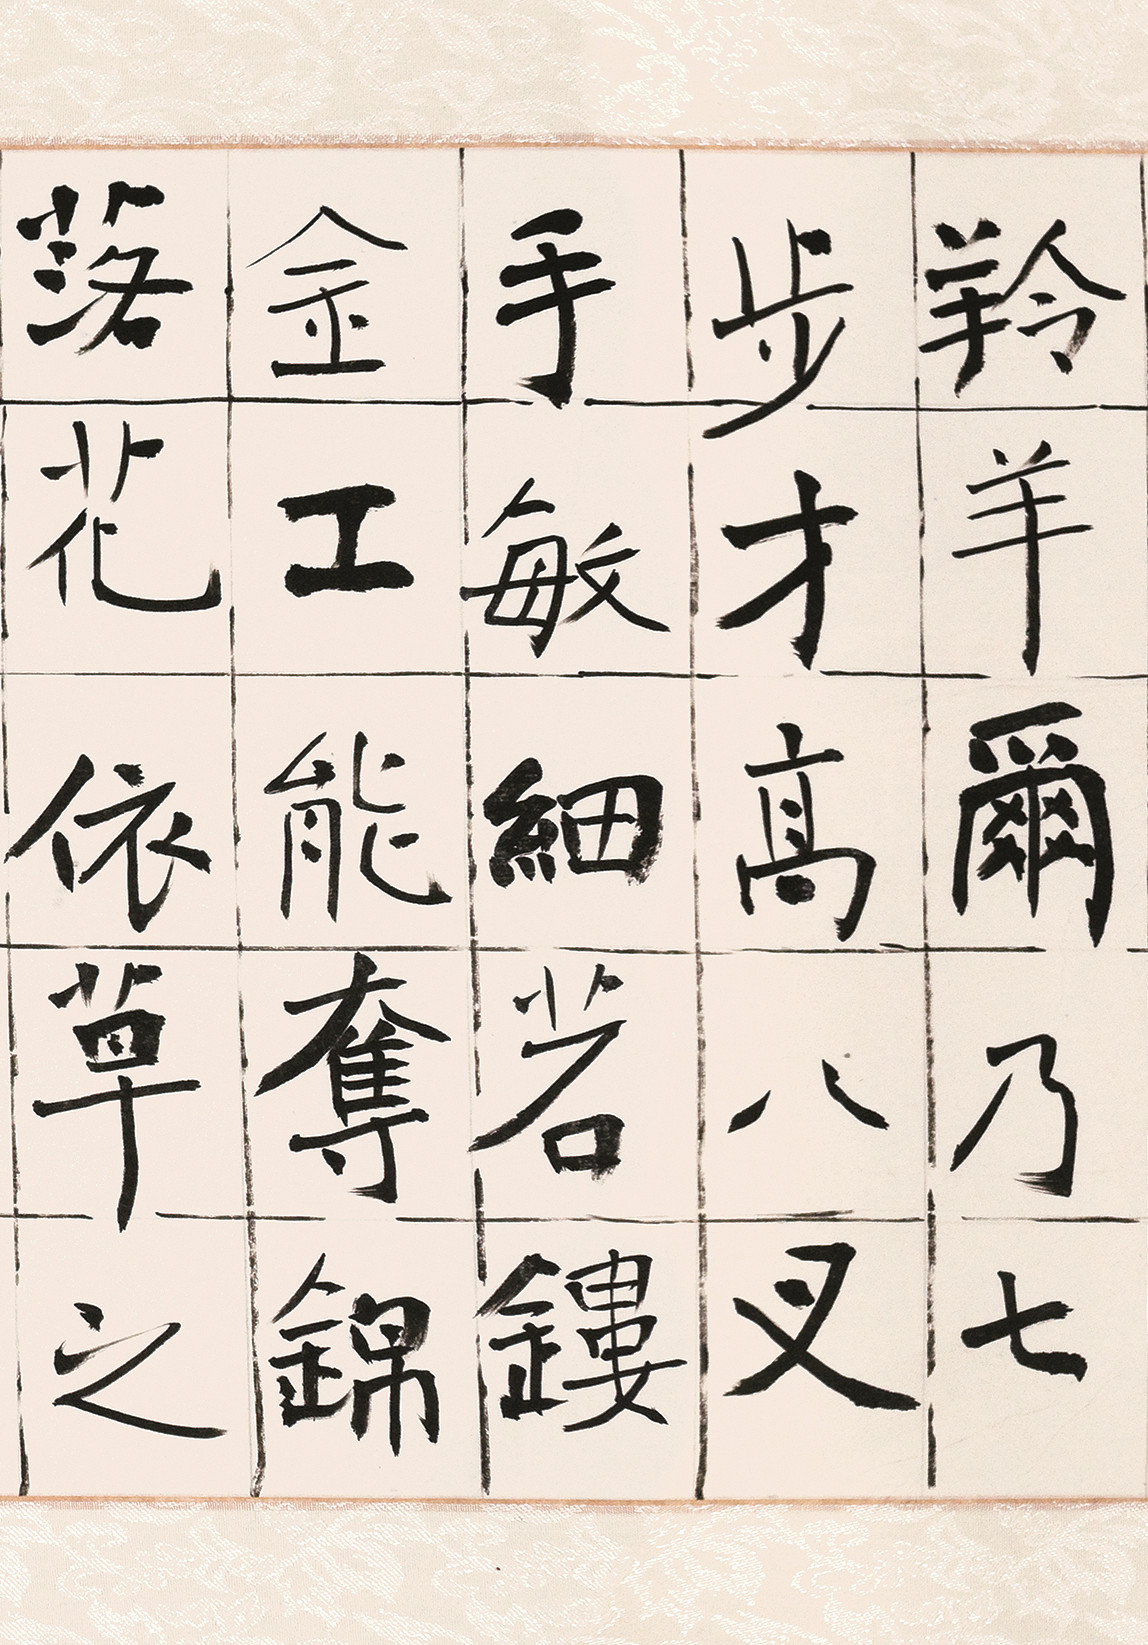 羚羊爾乃七
步才高八叉
手敏細若鏤
金工能奪錦
落花依草之